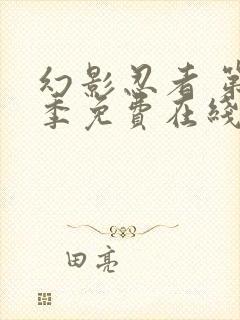 幻影忍者 第
季免費在綫
田亮